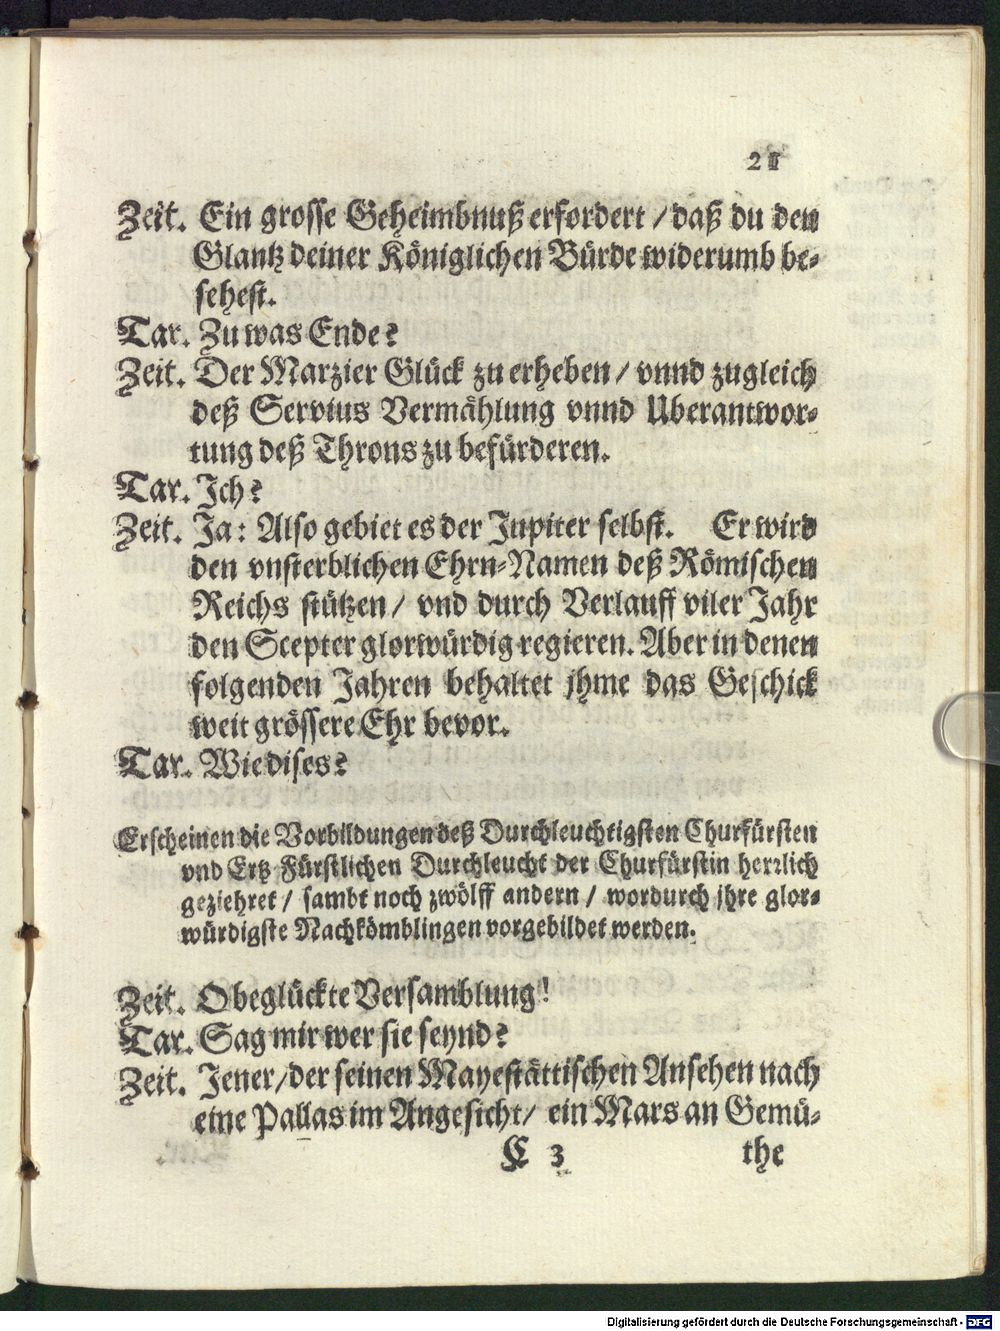 21
Zeit. Ein grosse Geheimbnuß erfordert / daß du den
Glantz deiner Königlichen Bürde widerumb be-
sehest.
Tar. Zu was Ende?
Zeit. Der Marzier Glück zu erheben / vnnd zugleich
deß Servius Vermählung vnnd Uberantwor-
tung deß Throns zu befürderen.
Tar. Ich?
Zeit. Ja: Also gebiet es der Jupiter selbst. Er wird
den vnsterblichen Ehrn-Namen deß Römischen
Reichs stützen / vnd durch Verlauff viler Jahr
den Scepter glorwürdig regieren. Aber in denen
folgenden Jahren behaltet jhme das Geschick
weit grössere Ehr bevor.
Tar. Wie dises?
Erscheinen die Vorbildungen deß Durchleuchtigsten Churfürsten
vnd Ertz Fürstlichen Durchleucht der Churfürstin herrlich
geziehret / sambt noch zwölff andern / wordurch jhre glor-
würdigste Nachkömblingen vorgebildet werden.
Zeit. O beglückte Versamblung!
Tar. Sag mir wer sie seynd?
Zeit. Jener / der seinen Mayestättischen Ansehen nach
eine Pallas im Angesicht / ein Mars an Gemü-
C 3 the
Digitalisierung gefördert durch die Deutsche Forschungsgemeinschaft - DFG